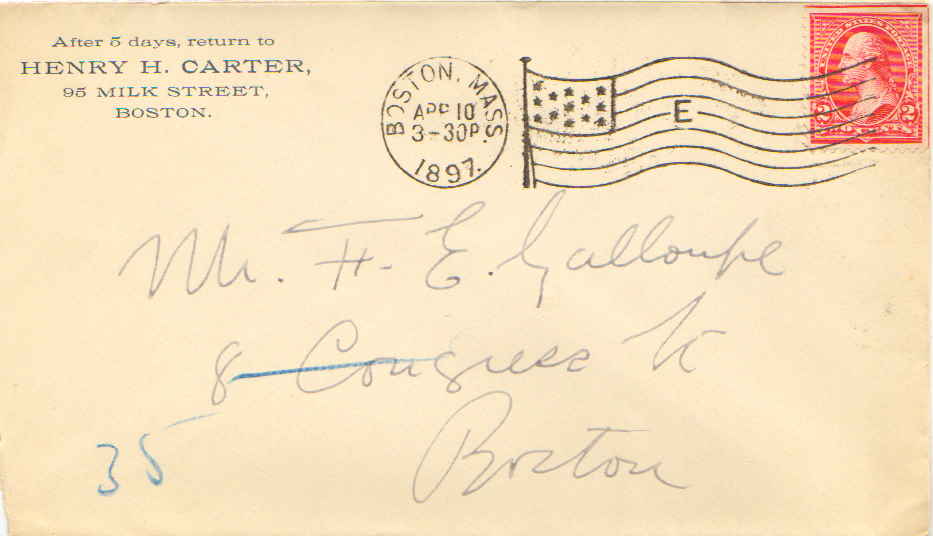 After 5 days, return to
HENRY H. CARTER,
95 MILK STREET,
BOSTON.
BOSTON, MASS.
APR 10
3-30P
1897.
E
UNITED STATES POSTAGE
2 TWO CENTS 2
Mr. F. E. Galloupe
8 Congress St
Boston
35